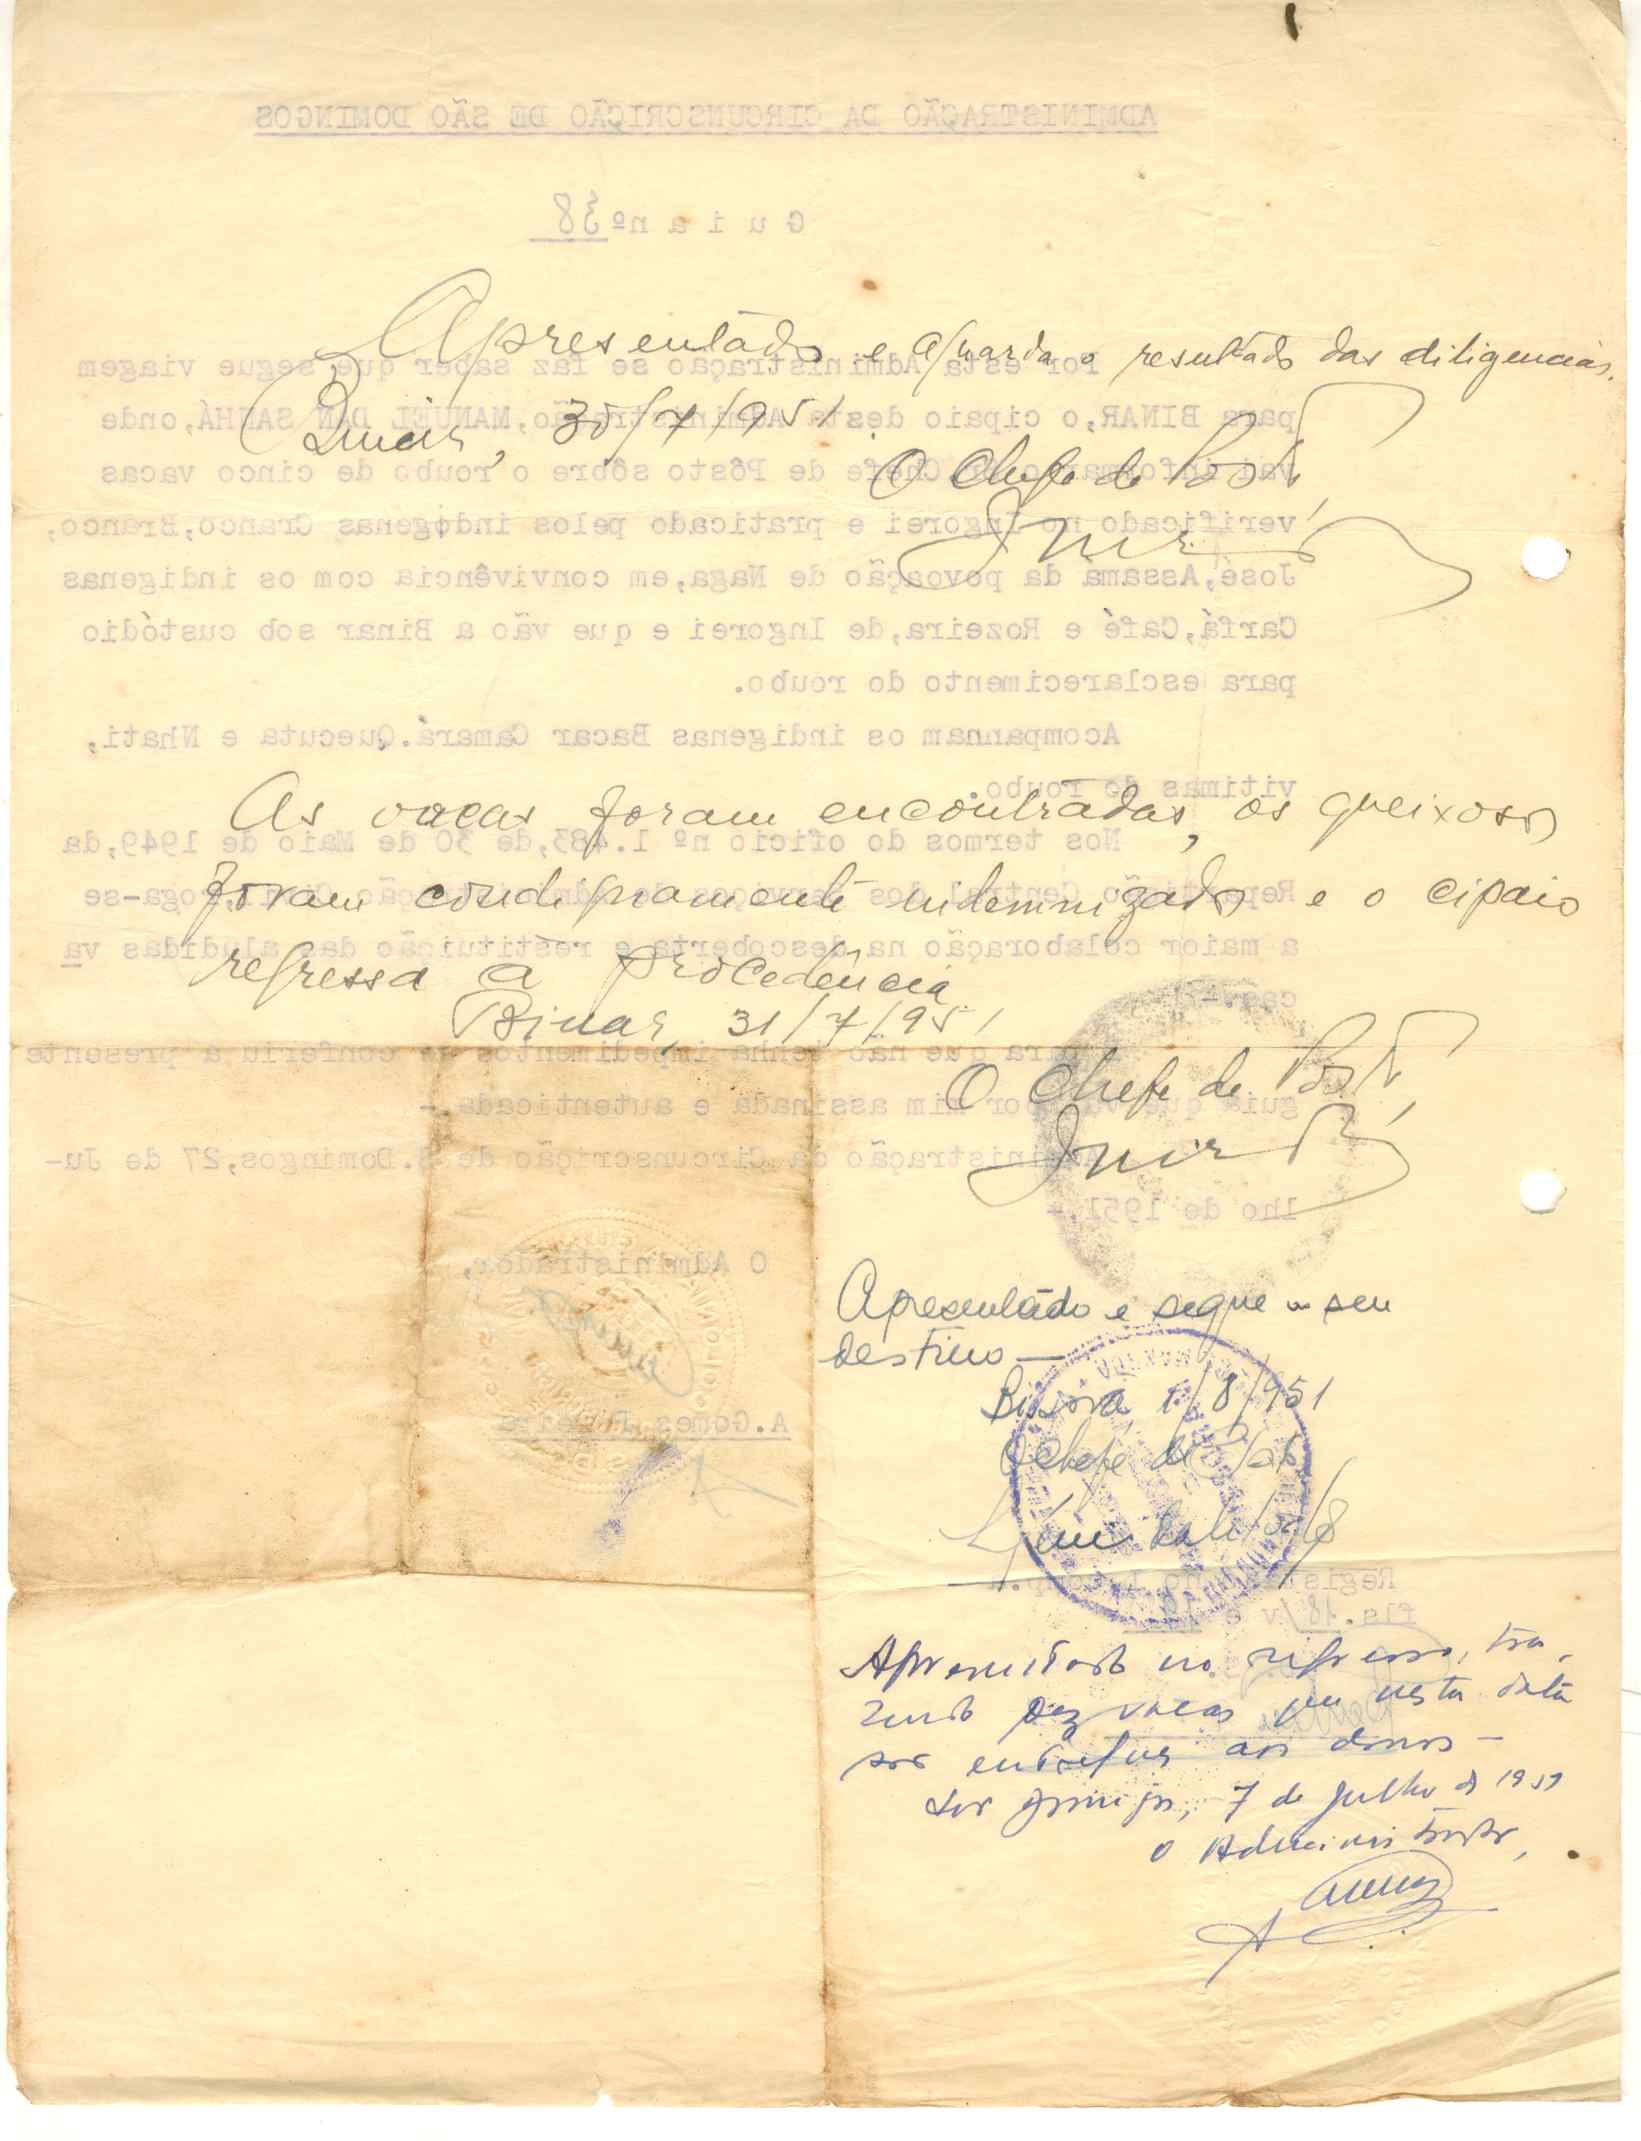 ADMINISTRAÇÃO DA CIRCUNSCRIÇÃO DE SÃO DOMINGOS
Guia nº 38
Apresentado e aguarda o resultado das diligencias.
Por esta Administração se faz saber que segue viagem
Binar, 30/7/951
para BINAR, o cipaio desta Administração, MANUEL DAN SANHÁ, onde
O Chefe de Posto,
vai informar o Chefe de Pôsto sôbre o roubo de cinco vacas
verificado no Ingorei e praticado pelos indigenas Cranco, Branco,
José, Assama da povoação de Naga, em convivência com os indigenas
Carfá, Café e Rozeira, de Ingorei e que vão a Binar sob custódio
para esclarecimento do roubo.
Acompanham os indigenas Bacar Camará. Quecuta e Nhati,
vitimas do roubo.
As vacas foram encontradas, os queixosos
Nos termos do oficio nº 1.483, de 30 de Maio de 1949, da
foram condignamente indemnizados e o cipaio
Repartição Central dos Serviços de Administração Civil, roga-se
a maior colaboração na descoberta e restituição das aludidas va
regressa a procedência
cas.-
Binar, 31/7/951
Para que não tenha impedimentos se conferiu a presente
O Chefe de Posto,
guia que vai por mim assinada e autenticada.-
Administração da Circunscrição de S. Domingos, 27 de Ju-
lho de 1951.-
O Administrador,
Apresentado e segue ao seu
destino —
Bissorã, 1/8/951
A. Gomes Pereira
O Chefe de Posto
Regist
fls. 18/v e 19
Apresentado no regresso, tra-
zendo dez vacas que nesta data
são entregues aos donos —
São Domingos, 7 de Julho de 1951
O Administrador,